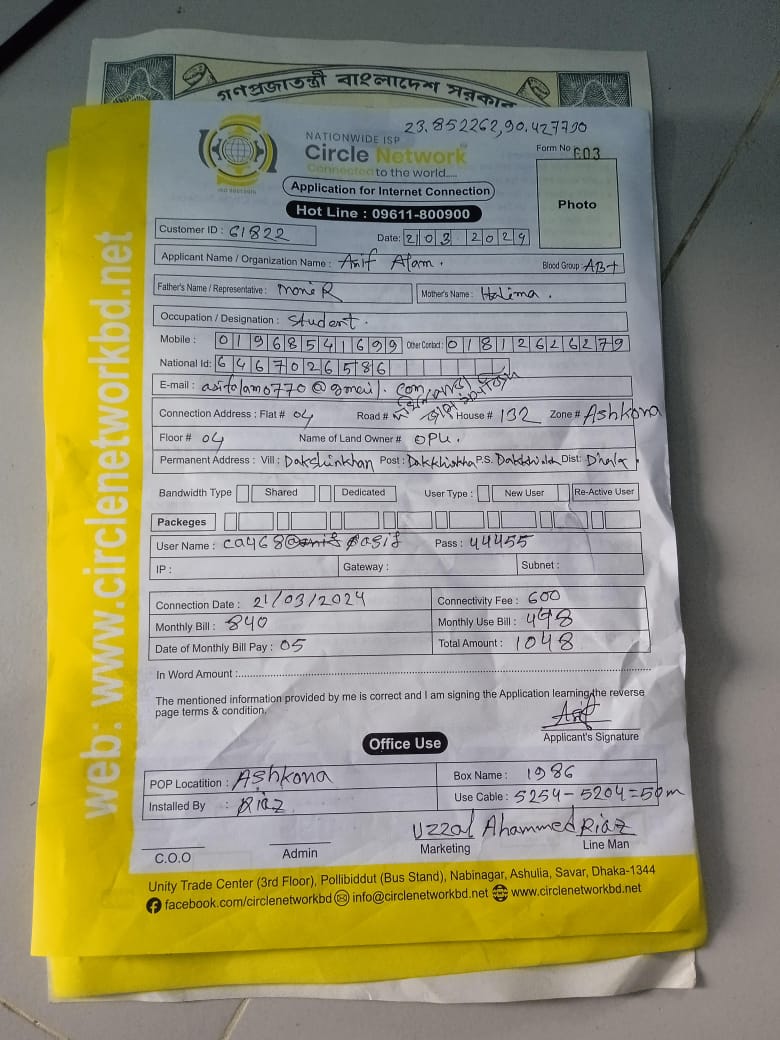 গণপ্রজাতন্ত্রী বাংলাদেশ সরকার
23.852262,90.427790
NATIONWIDE ISP
Circle Network
Connected to the world....
ISO 9001:2015
Form No 603
Application for Internet Connection
Photo
Hot Line : 09611-800900
Customer ID : 61822
Date: 21 03 2024
Applicant Name / Organization Name : Arif Alam. Blood Group : AB+
Father's Name / Representative : moniR Mother's Name : Halima.
Occupation / Designation : Student.
Mobile : 01968541699 Other Contact : 01812626279
National Id: 6467026586
E-mail : asifalam0770@gmail.com
Connection Address : Flat # 04 Road # House # 132 Zone # Ashkona
Floor # 04 Name of Land Owner # OPU.
Permanent Address : Vill : Dakshinkhan Post : P.S. Dist: Dhaka.
Bandwidth Type Shared Dedicated User Type : New User Re-Active User
Packeges
User Name : ca468@ asif Pass : 44455
IP : Gateway : Subnet :
Connection Date : 21/03/2024 Connectivity Fee : 600
Monthly Bill : 840 Monthly Use Bill : 448
Date of Monthly Bill Pay : 05 Total Amount : 1048
In Word Amount :
The mentioned information provided by me is correct and I am signing the Application learning the reverse
page terms & condition.
Applicant's Signature
Office Use
POP Locatition : Ashkona Box Name : 1986
Installed By : Riaz Use Cable : 5254-5204=50m
Uzzal Ahammed Riaz
C.O.O Admin Marketing Line Man
Unity Trade Center (3rd Floor), Pollibiddut (Bus Stand), Nabinagar, Ashulia, Savar, Dhaka-1344
facebook.com/circlenetworkbd info@circlenetworkbd.net www.circlenetworkbd.net
web: www.circlenetworkbd.net